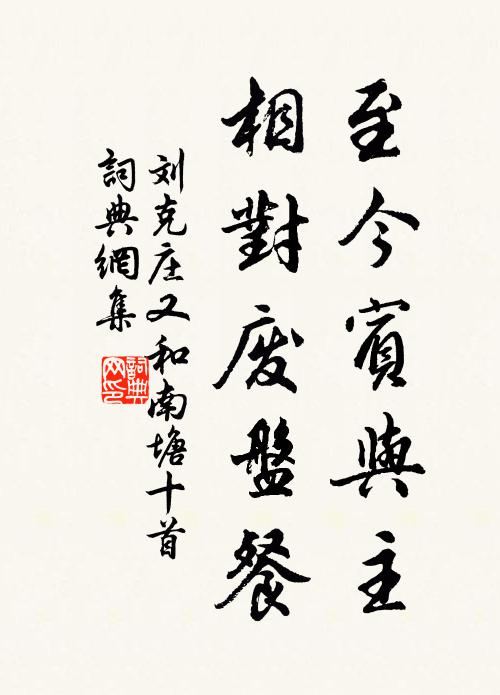 至今賓與主
相對废盤餐
刘克庄又和南塘十首
詞典網集
詞典网印